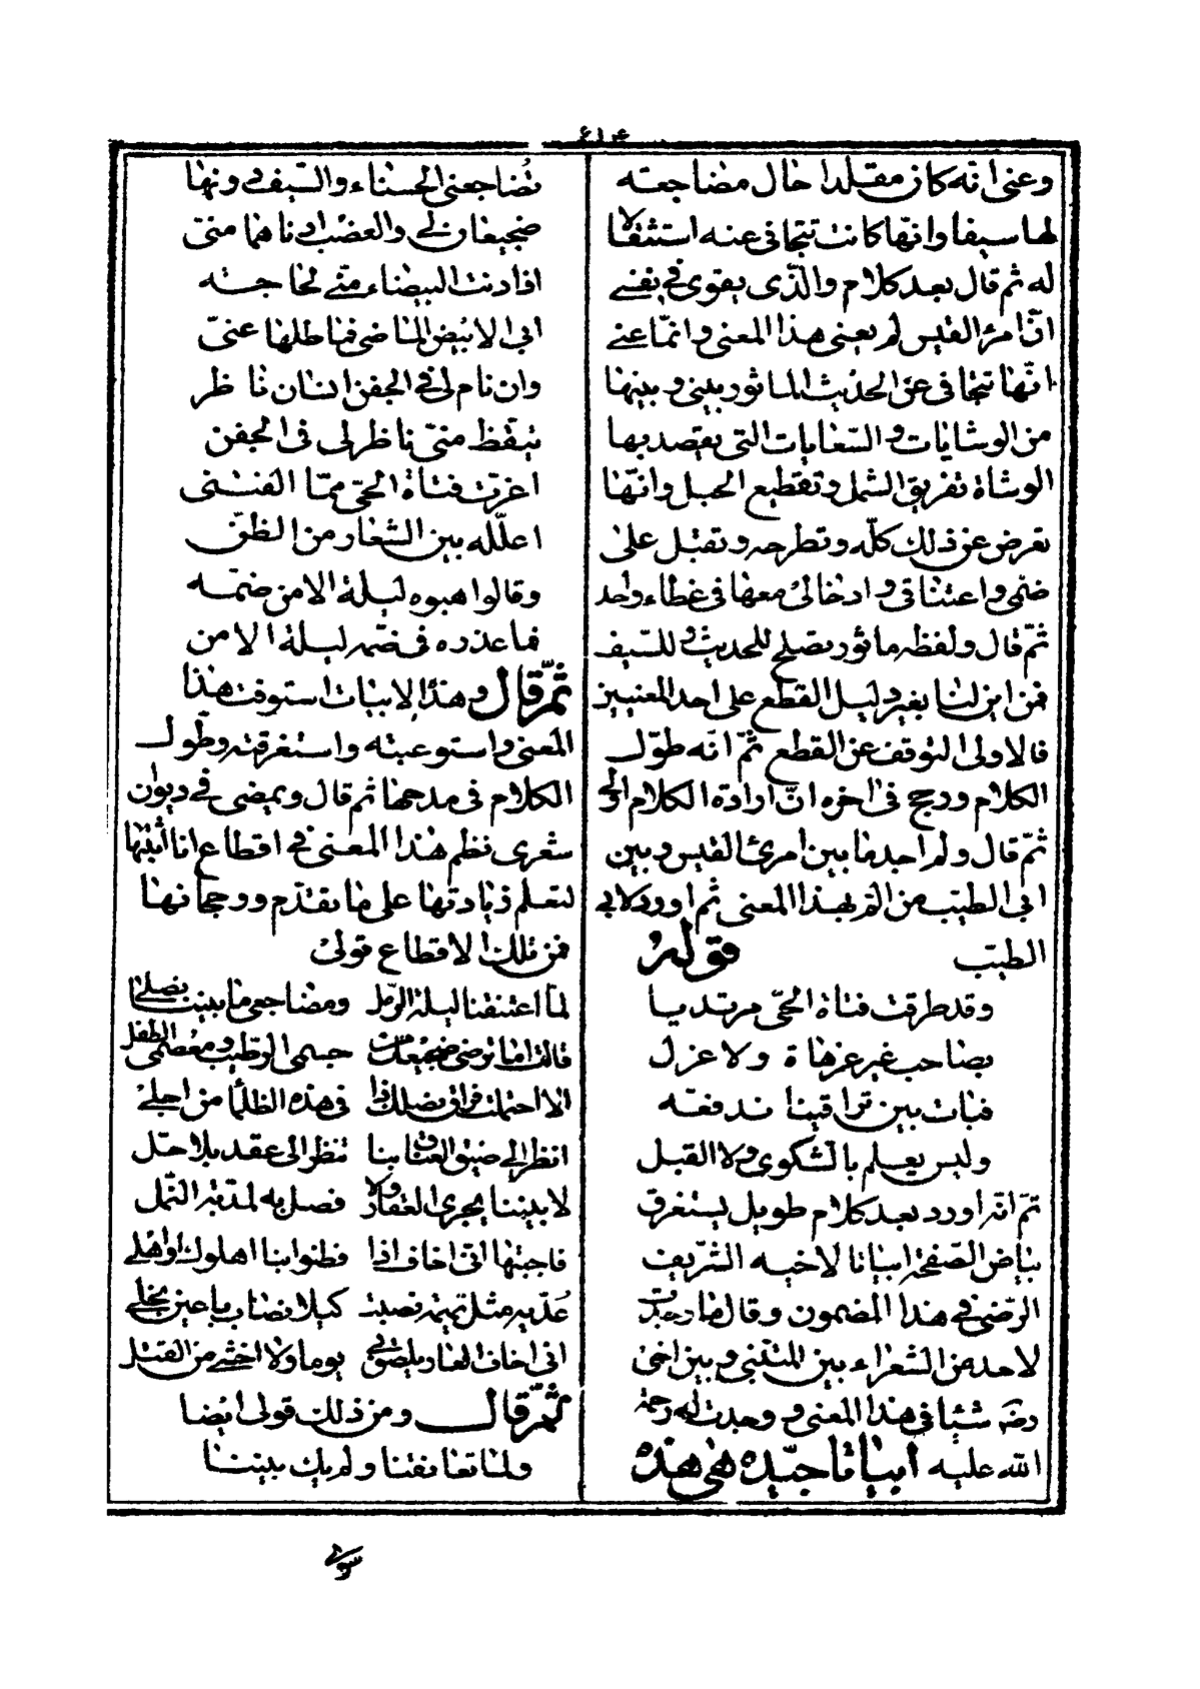 وعنى انّه كان مقلدا حال مضاجعته
لها سيفا وانّها كانت تتجافى عنه استثقالا
له ثم قال بعد كلام والذى يقوى فى نفسى
انّ امرئ القيس لم يعنى هذا المعنى وانمّا عنى
انّها تتجافى عن الحديث الماثور بينى وبينها
من الوشايات والسّعايات التى يقصد بها
الوشاة تفريق الشمل وتقطيع الحبل وانّها
تعرض عن ذلك كلّه وتطرحه وتقبل على
ضمّى واعتناقى وادخالى معها فى غطاء واحد
ثمّ قال ولفظه ماثور يصلح للحديث وللسّيف
فمن اين لنا بغير دليل القطع على احد المعنيين
فالاولى التوقف عن القطع ثمّ انّه طوّل
الكلام ورجح فى اخره انّ ارادة الكلام اولى
ثمّ قال ولم اجد ما بين امرئ القيس وبين
ابى الطيّب من المّ بهذا المعنى ثم اورد لابى
الطيّب قوله
وقد طرقت فتاة الحىّ مرتديا
بصاحب غير عزهاة ولا عزل
فبات بين تراقينا ندفعه
وليس يعلم بالشكوى ولا القبل
ثمّ انّه اورد بعد كلام طويل يستغرق
بياض الصّفحة ابياتا لاخيه الشّريف
الرّضى فى هذا المضمون وقال ما وجدت
لاحد من الشعراء بين المتنبّى وبين اخى
رضه شيئا فى هذا المعنى ووجدت له رحمة
الله عليه ابياتا جيّده هى هذه
تُضاجعنى الحسناء والسّيف دونها
ضجيعان لى والعضب ادناهما منّى
اذا دنت البيضاء منّى لحاجته
ابى الابيض الماضى فماطلها عنّى
وان نام لى فى الجفن انسان ناظر
تيقّظ منّى ناظر لى فى الجفن
اغرت فتاة الحىّ ممّا الفتنى
اعلّله بين الشعار من الظنّ
وقالوا هبوه ليلة الامن ضمّه
فما عذره فى ضمّه ليلة الامن
ثمّ قال وهذه الابيات استوفت هذا
المعنى واستوعبته واستغرقته وطول
الكلام فى مدحها ثم قال ويمضى فى ديوان
شعرى نظم هذا المعنى فى اقطاع انا اثبتها
لتعلم زيادتها على ما تقدّم ورجحانها
فمن تلك الاقطاع قولى
لمّا اعتنقنا ليلة الرّمل ومضاجعى ما بيننا نصلى
قالت اما ترضى ضجيعك من جسمى الرطيب ومعصمى الطفل
الا احتملت فراق نصلك ذا فى هذه الظلما من اجلى
انظر الى ضيق العناق بنا تنظر الى عقد بلا حلّ
لا بيننا يجرى العقار ولا فصل به لمدبّة النّمل
فاجبتها انّى اخاف اذا فطنوا بنا اهلوك او اهلى
عدّيه مثل تميمة نصبت كيلا نصاب باعين نجلى
انى اخاف العار يلصق بى يوما ولا اخشى من القتل
ثمّ قال ومن ذلك قولى ايضا
ولمّا تعانقنا ولم يك بيننا